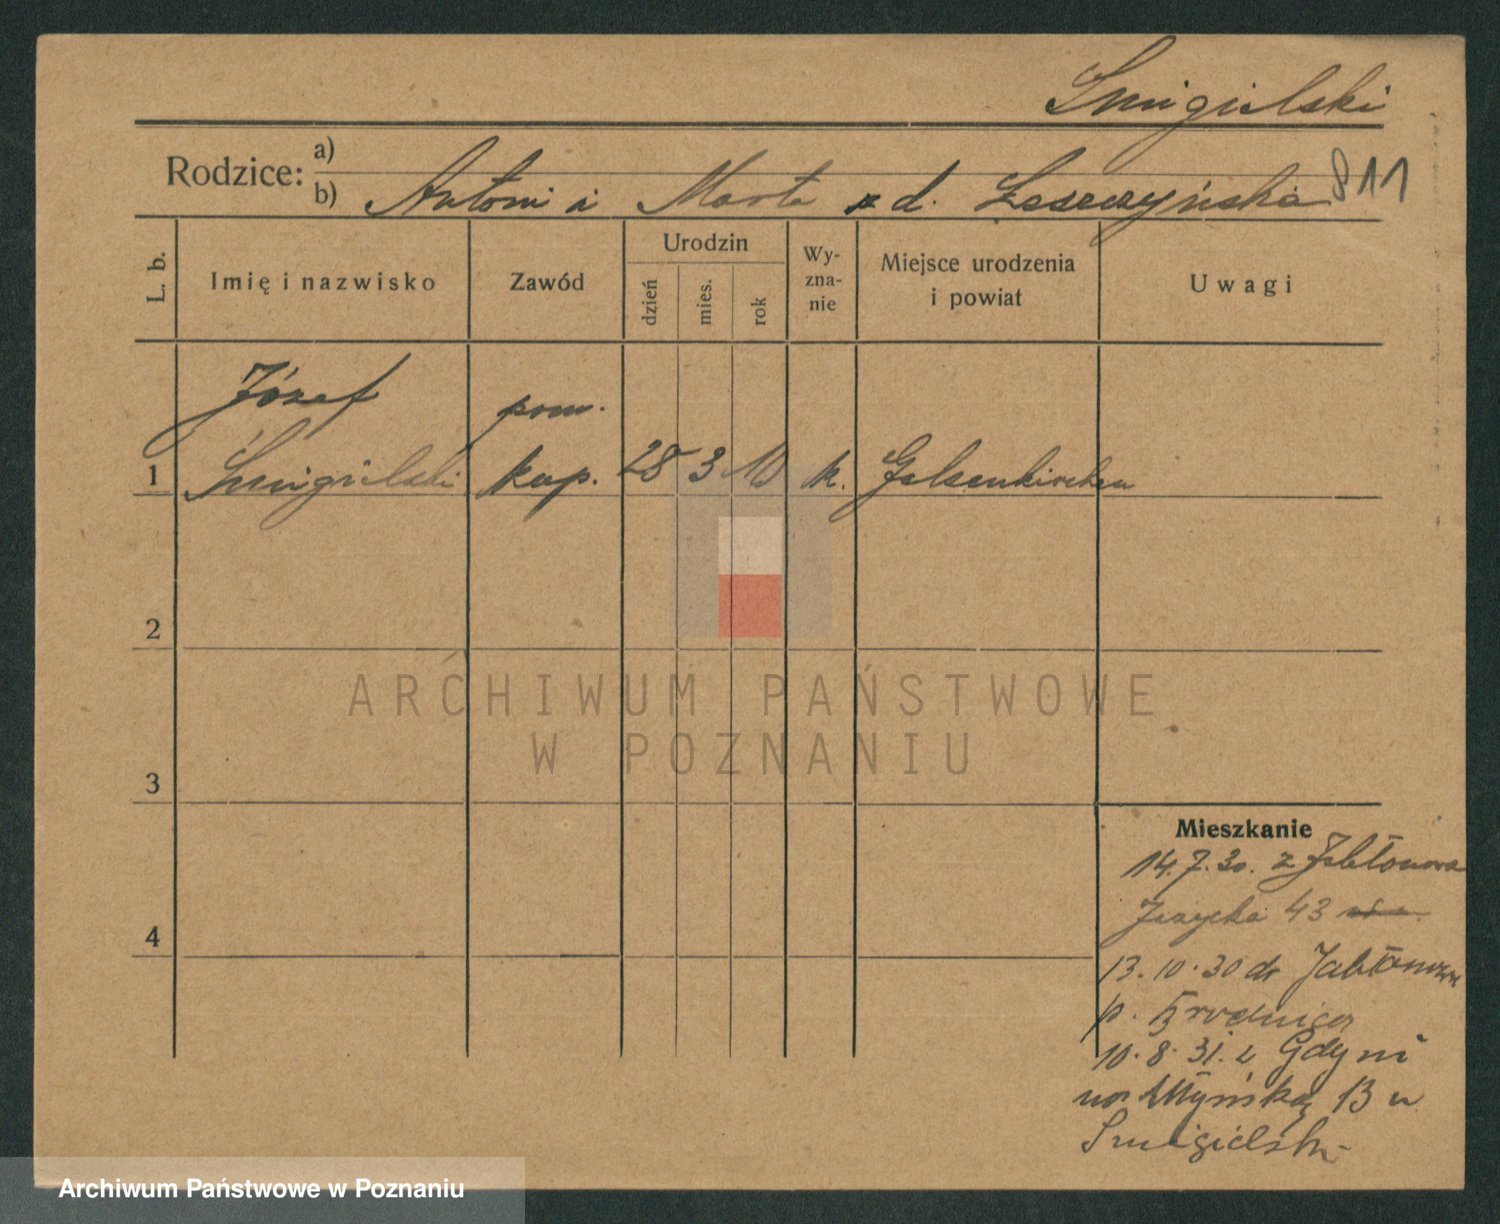 Śmigielski
Rodzice:
a)
b) Antoni i Marta z d. Leszczyńska 811
L. b.
Imię i nazwisko
Zawód
Urodzin
dzień
mies.
rok
Wy-
zna-
nie
Miejsce urodzenia
i powiat
Uwagi
Józef pom.
1 Śmigielski kup. 28 3 10 k. Gelsenkirchen
2
3
4
Mieszkanie
14.7.30. z Jabłonowa
43
13.10.30 do Jabłonowa
p. Brodnica
10.8.31. z Gdyni
na Młyńską 13 u
Śmigielski
ARCHIWUM PAŃSTWOWE
W POZNANIU
Archiwum Państwowe w Poznaniu